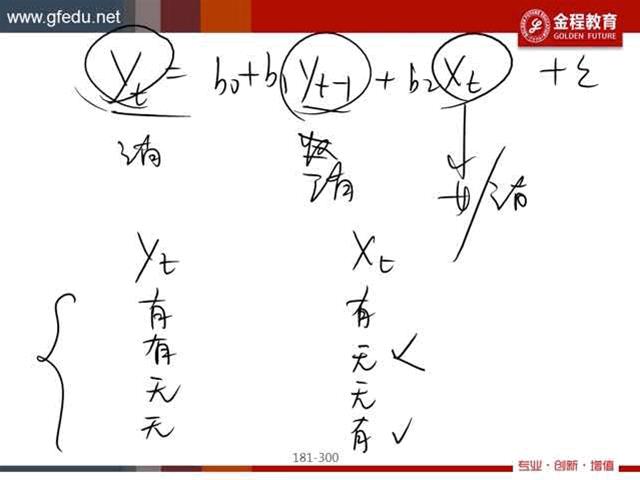 www.gfedu.net
金程教育
GOLDEN FUTURE
yt = b0+b1 yt-1 + b2 xt + ε
yt xt
有 有
有 无 ✓
无 无
无 有 ✓
181-300
专业·创新·增值